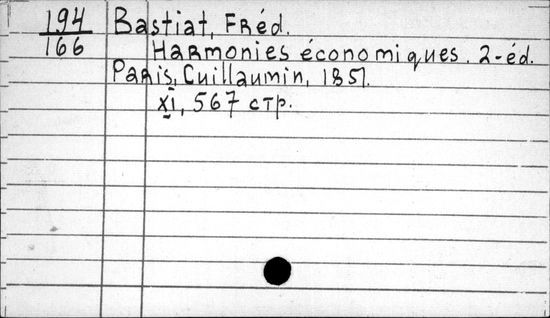 194 Bastiat, Fréd.
166 Harmonies économiques. 2-éd.
Paris, Cuillaumin, 1851.
XI, 567 стр.